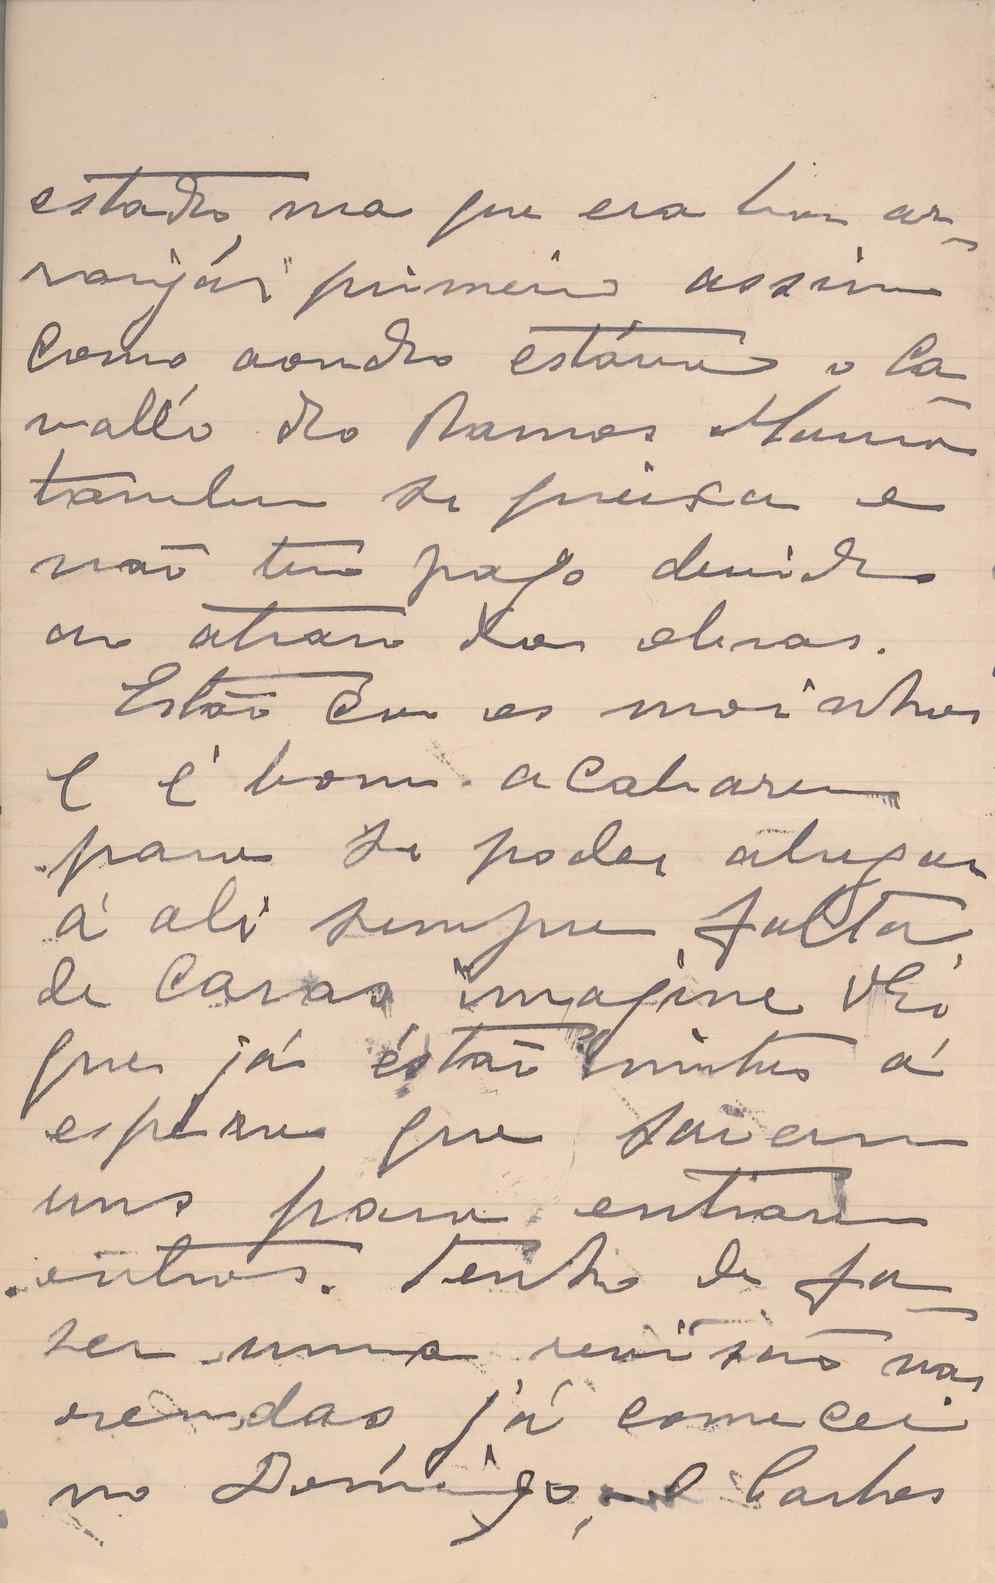 estado, ma que era bom ar-
ranjár primeiro assim
como aondo estáva o ca-
valló do Ramos
tambem se queixa e
não tem pago devido
ao atraso das obras.
Estão em os moinhos
e é bom acabarem
para se poder alugar
á ali sempre falta
de casas, imagine
que já éstão muitos á
espéra que saiam
uns para entrarem
outros. Tenho de fa-
ser uma revisão nas
rendas, já comecei
no Domingo, o Carlos